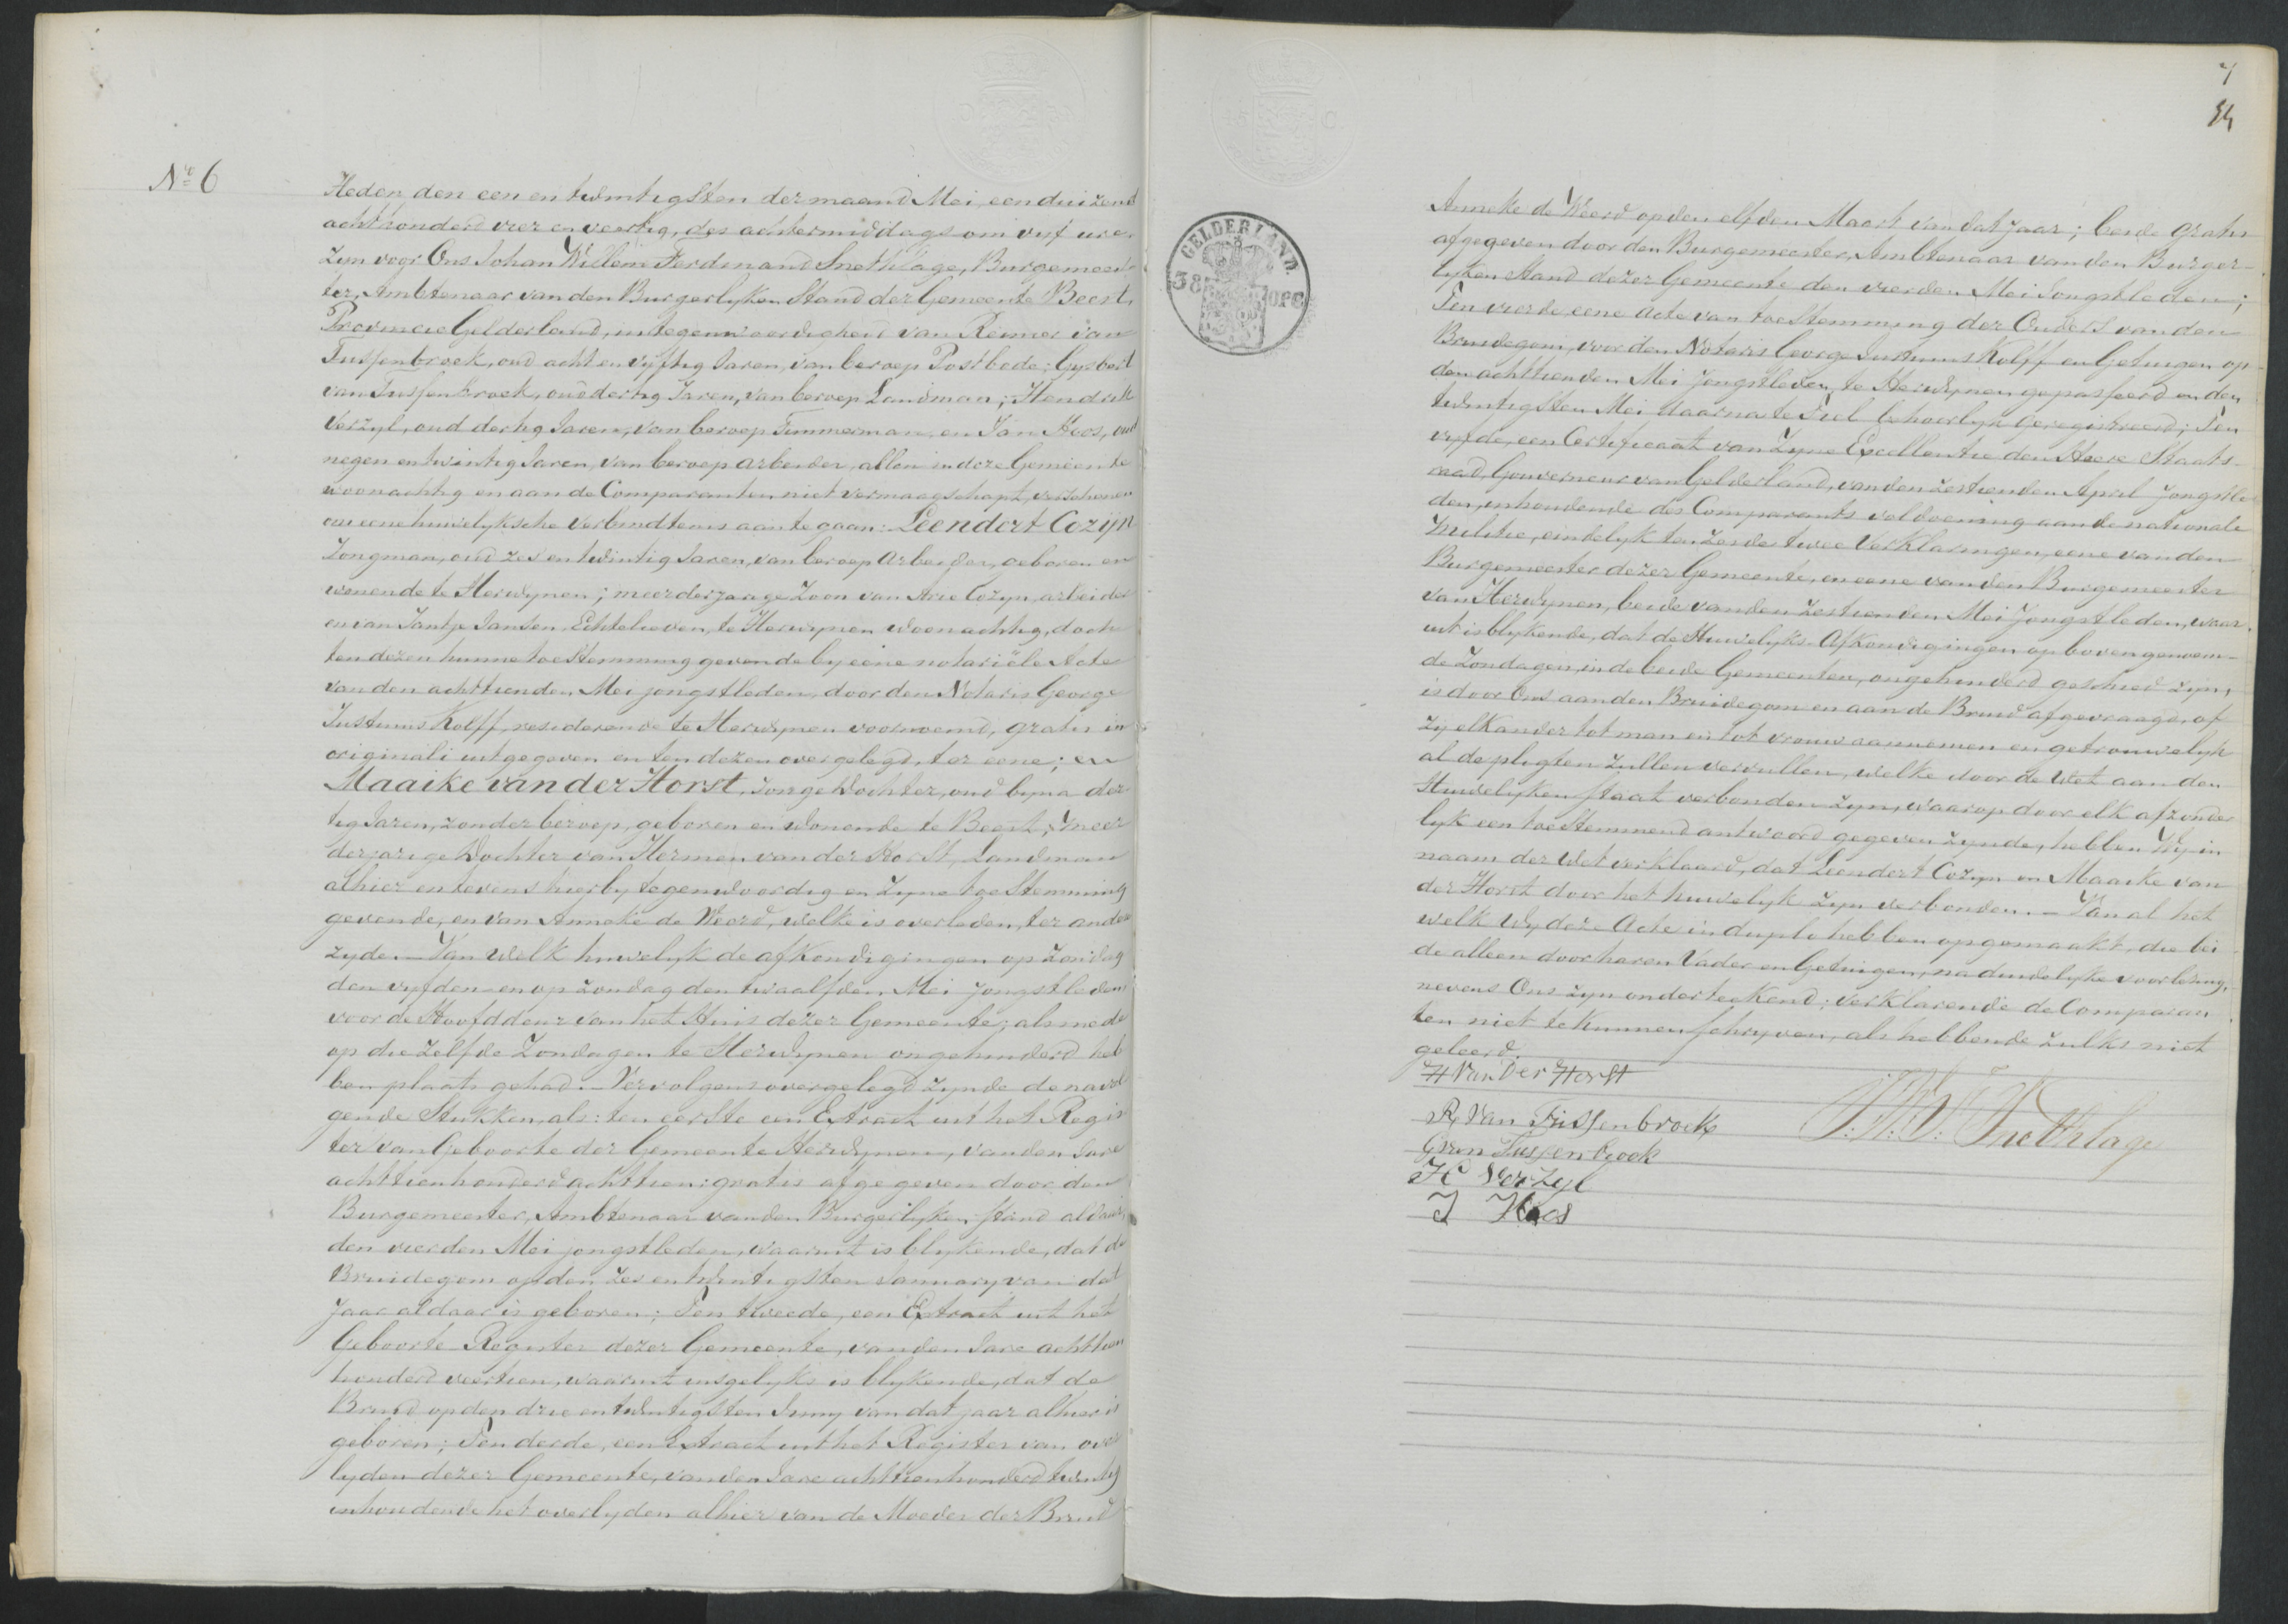 No 6
Heden den een en twintigsten der maand Mei, een duizend
achthonderd vier en veertig, des achtermiddags om vijf ure
zijn voor Ons Johan Willem Ferdinand Snethlage, Burgemees-
ter, Ambtenaar van den Burgerlyken Stand der Gemeente Beest,
Provincie Gelderland, in tegenwoordigheid van Reimer van
Tussenbroek, oud acht en vyftig Jaren, van beroep Postbode; Gysbert
van Tussenbroek, oud dertig Jaren, van beroep Landman; Hendrik
Verzyl, oud dertig Jaren, van beroep Timmerman, en Jan Hoos, oud
negen en twintig Jaren, van beroep arbeider, allen in deze Gemeente
woonachtig en aan de Comparanten niet vermaagschapt, verschenen
om eene huwelyksche Verbindtenis aan te gaan: Leendert Cozijn
Jongman, oud zes en twintig Jaren, van beroep Arbeider, geboren en
wonende te Herwynen; meerderjarige Zoon van Arie Cozyn, arbeider
en van Jantje Jansen, Echtelieden, te Herwynen woonachtig, doch
ten dezen hunne toestemming gevende by eene notariële Acte
van den achttienden Mei jongstleden, door den Notaris George
Justinus Kolff, residerende te Herwynen voornoemd, gratis in
originali uitgegeven en ten dezen overgelegd, ter eene; en
Maaike van der Horst, Jonge Dochter, oud byna der-
tig Jaren, zonder beroep, geboren en wonende te Beest; meer
derjarige Dochter van Hermen van der Horst, Landman
alhier en tevens hierby tegenwoordig en zyne toestemming
gevende, en van Anneke de Weerd, welke is overleden, ter andere
zyde. — Van welk huwelyk de afkondigingen op Zondag
den vyfden en op Zondag den twaalfden Mei jongstleden
voor de Hoofddeur van het Huis dezer Gemeente; als mede
op die zelfde Zondagen te Herwynen ongehinderd heb
ben plaats gehad. — Vervolgens overgelegd zynde de navol
gende Stukken, als: ten eerste een Extract uit het Regis
ter van Geboorte der Gemeente Herwynen, van den Jare
achttienhonderd achttien: gratis afgegeven door den
Burgemeester, Ambtenaar van den Burgerlyken Stand aldaar,
den vierden Mei jongstleden, waaruit is blykende, dat de
Bruidegom op den zes en twintigsten January van dat
Jaar aldaar is geboren; Ten tweede, een Extract uit het
Geboorte Register dezer Gemeente, van den Jare achttien
honderd veertien, waaruit insgelyks is blykende, dat de
Bruid op den drie en twintigsten Juny van dat jaar alhier is
geboren; Ten derde, een Extract uit het Register van over
lyden dezer Gemeente, van den Jare achttienhonderd twintig
inhoudende het overlyden alhier van de Moeder der Bruid
GELDERLAND.
38 OPC
7
Anneke de Weerd op den elfden Maart van dat Jaar; beide gratis
afgegeven door den Burgemeester, Ambtenaar van den Burger-
lyken Stand dezer Gemeente den vierden Mei Jongstleden;
Ten vierde eene Acte van toestemming der Ouders van den
Bruidegom, voor den Notaris George Justinus Kolff en Getuigen op
den achttienden Mei Jongstleden, te Herwynen gepasseerd en den
twintigsten Mei daarna te Tiel behoorlyk geregistreerd; Ten
vyfde, een Certificaat van Zyne Excellentie den Heere Staats-
raad, Gouverneur van Gelderland, van den zestienden April Jongstle
den, inhoudende des Comparants voldoening aan de nationale
Militie, eindelyk ten zesde twee Verklaringen, eene van den
Burgemeester dezer Gemeente, en eene van den Burgemeester
van Herwynen, beide van den zestienden Mei Jongstleden, waar
uit is blykende, dat de Huwelyks-Afkondigingen op bovengenoem-
de Zondagen, in de beide Gemeenten, ongehinderd geschied zyn,
is door Ons aan den Bruidegom en aan de Bruid afgevraagd, of
zy elkander tot man en tot vrouw aannemen en getrouwelyk
al de pligten zullen vervullen, welke door de Wet aan den
Huwelyken staat verbonden zyn, waarop door elk afzonder
lyk een toestemmend antwoord gegeven zynde, hebben Wy in
naam der Wet verklaard, dat Leendert Cozyn en Maaike van
der Horst door het huwelyk zyn verbonden. — Van al het
welk Wy deze Acte in duplo hebben opgemaakt, die bei
de alleen door haren Vader en Getuigen, na duidelyke voorlezing,
nevens Ons zyn onderteekend; verklarende de Comparan
ten niet te kunnen schryven, als hebbende zulks niet
geleerd.
H Van Der Horst
R Van Tussenbroek
J. W. F. Snethlage
G van Tussenbroek
H Verzyl
J Hoos